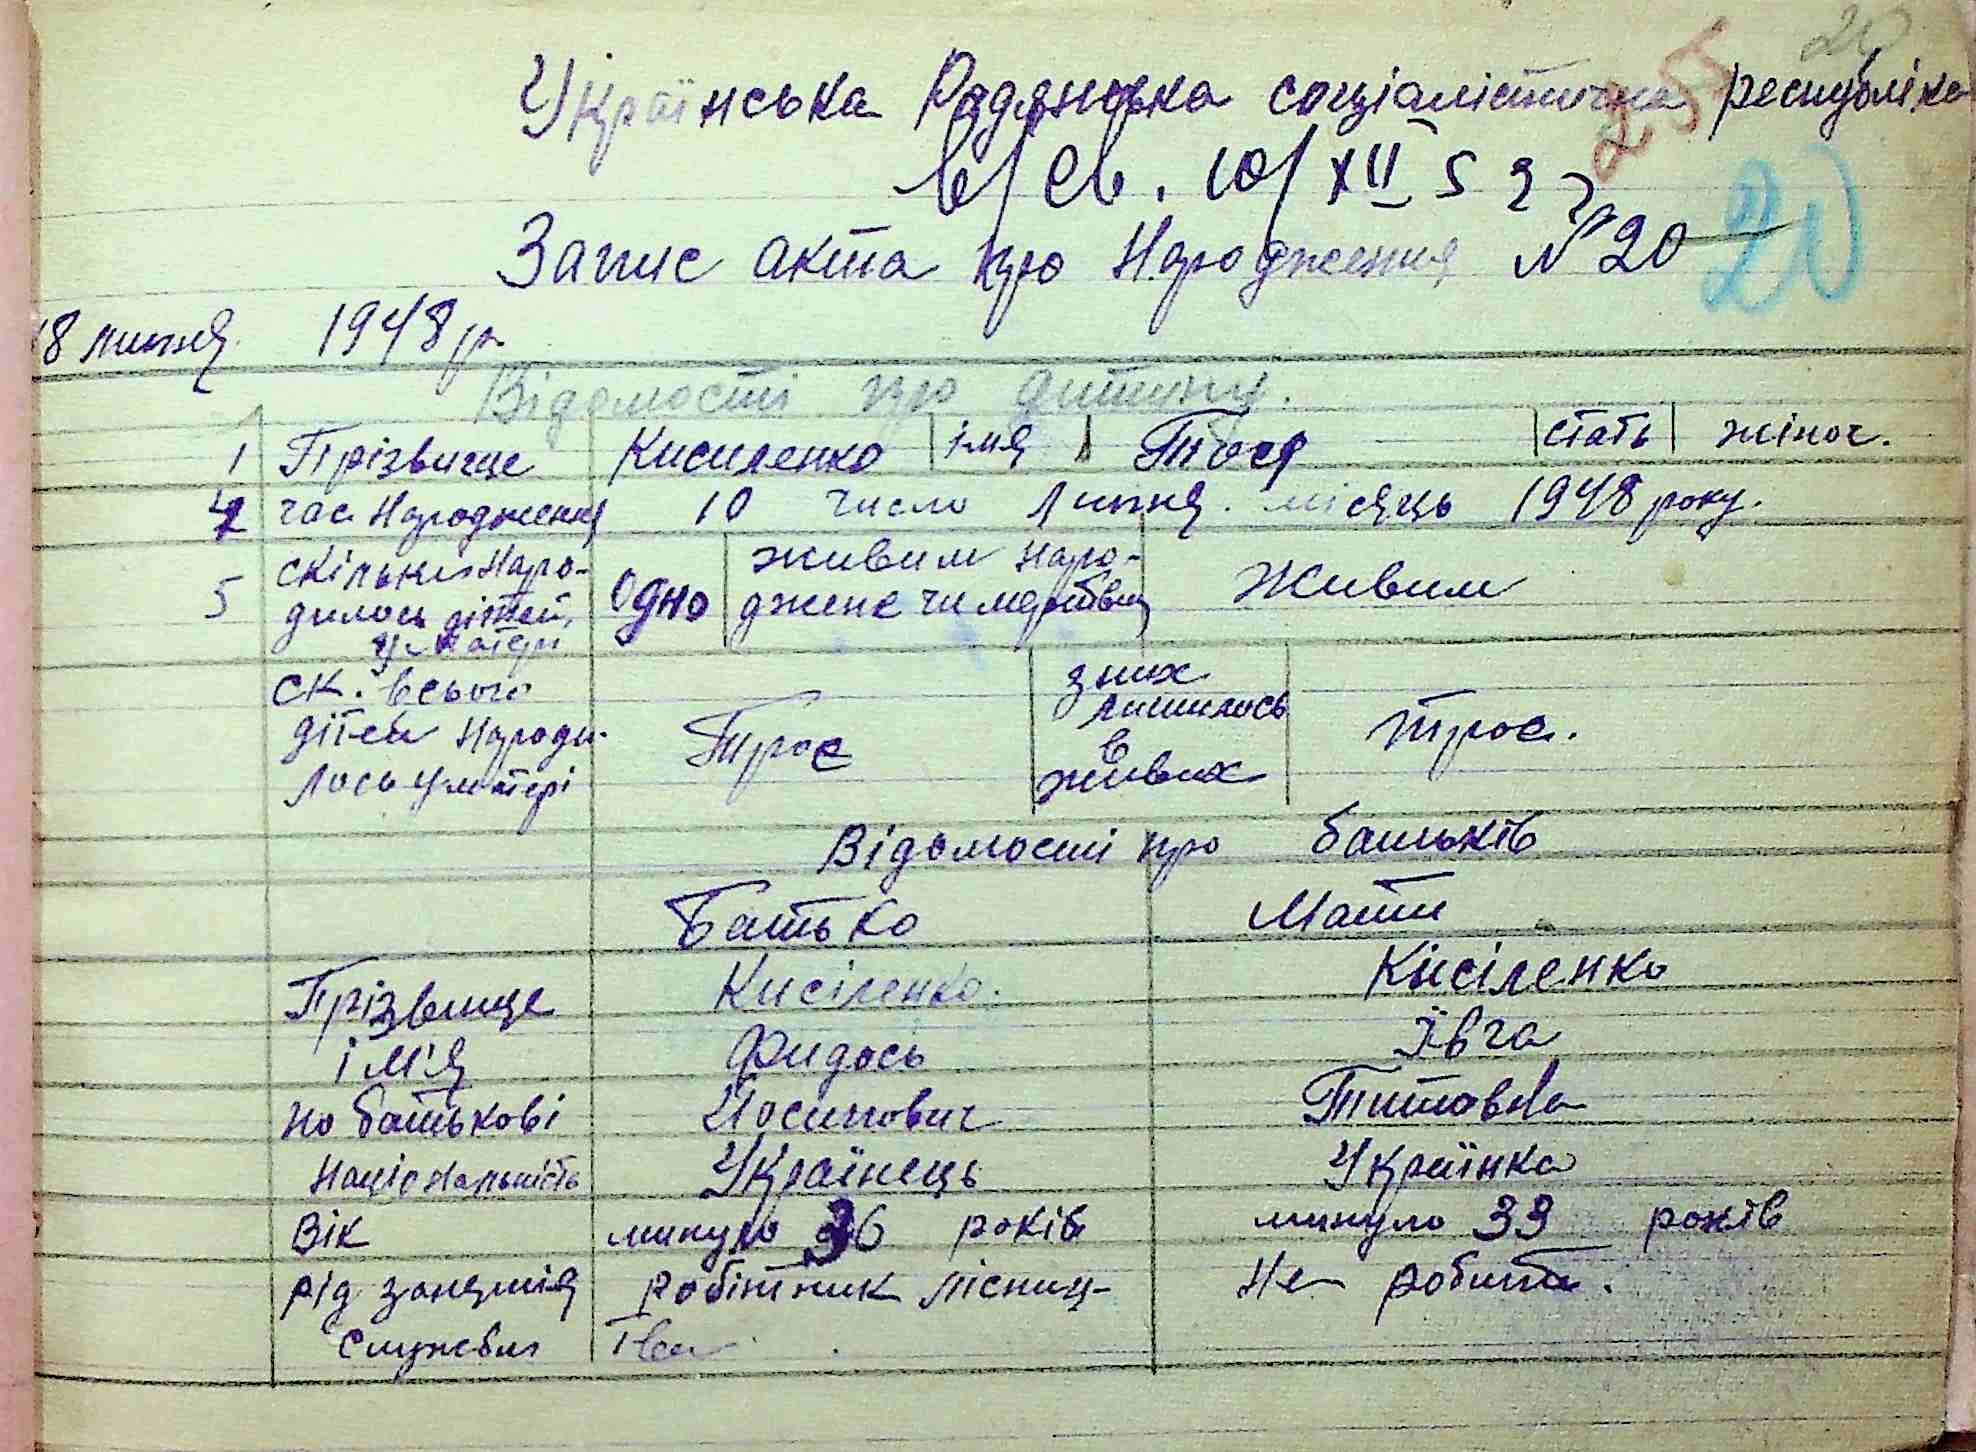 20
255
Українська Радянська соціалістична республіка
в/св. 10/XII 52 р
Запис акта про Народження № 20
20
18 липня 1948 р
Відомості про дитину.
1 Прізвище Кисиленко імя Тося стать жіноч.
4 час Народження 10 число Липня. місяць 1948 року.
5 скільки Наро-
дилось дітей,
у матері Одно живим наро-
джене чи мертвим Живим
ск. всього
дітей Народи-
лось у матері Троє з них
лишилось
в
живих троє.
Відомості про батьків
Батько Мати
Прізвище Кисіленко. Кисіленко
ім'я Фидось Ївга
по батькові Йосипович Титовна
Національність Українець Українка
Вік минуло 36 років минуло 33 років
рід заняття Робітник лісниц- Не робить.
службы тва